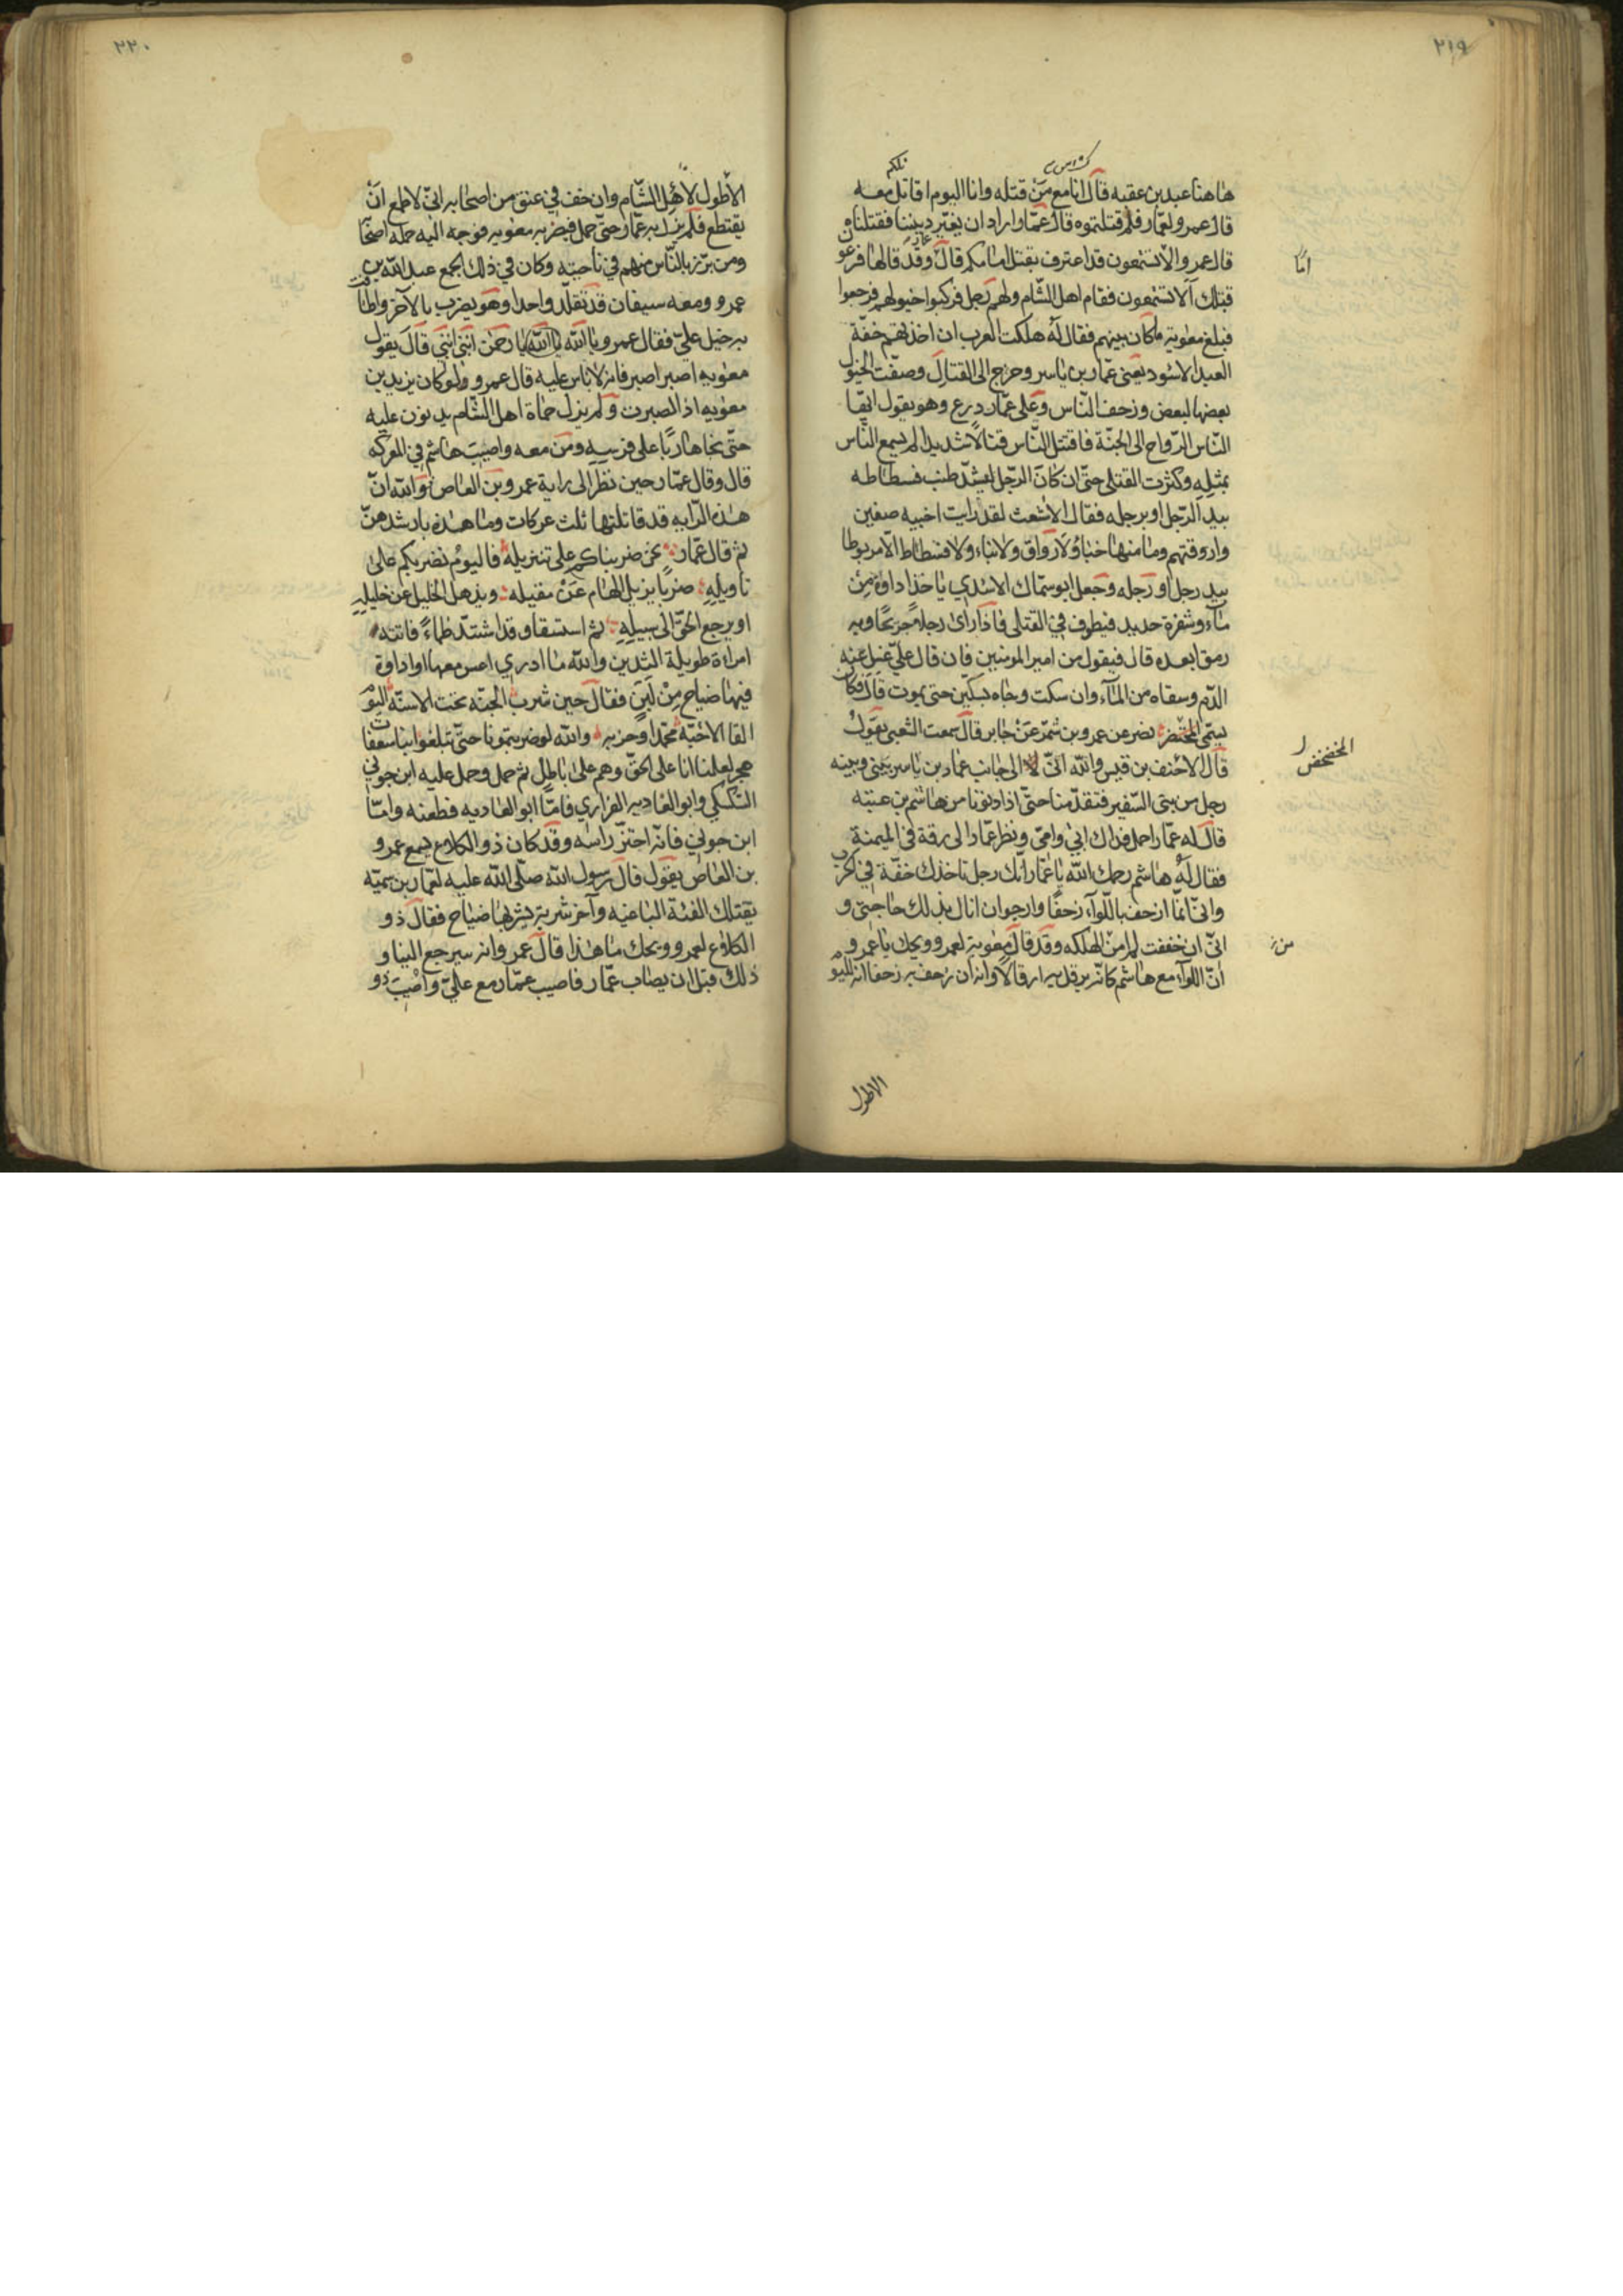 ٢١٩
هاهنا عبد بن عقبه قال انا مع من قتله وانا اليوم اقاتل معه
قال عمرو لعمار فلم قتلتموه قال عمار اراد ان يغيّر ديننا فقتلناه
قال عمرو الا تستمعون قد اعترف بقتل امامكم قال عمار وقد قالها فرعون
قبلك الا تستمعون فقام اهل الشام ولهم زجل فركبوا خيولهم فرجعوا
فبلغ معوية ما كان بينهم فقال له هلكت العرب ان اخذتهم خفة
العبد الاسود يعني عمار بن ياسر وخرج الى القتال وصفت الخيول
بعضها لبعض وزحف الناس وعلى عمار درع وهو يقول ايها
الناس الرواح الى الجنة فاقتتل الناس قتالا شديدا لم يسمع الناس
بمثله وكثرت القتلى حتى ان كان الرجل ليشد طنب فسطاطه
بيد الرجل او برجله فقال الاشعث لقد رايت اخبيه صفين
واروقتهم وما منها خباء ولا رواق ولا بناء ولا فسطاط الا مربوطا
بيد رجل او رجله وجعل ابو سماك الاسدي ياخذ اداوة من
ماء وشفرة حديد فيطوف في القتلى فاذا رأى رجلا جريحا وبه
رمق ابعده قال فيقول من امير المومنين فان قال علي غسل عنه
الدم وسقاه من الماء وان سكت وجاه بسكين حتى يموت قال فكان
يسمى المخضر نصر عن عمرو بن شمر عن جابر قال سمعت الشعبي يقول
قال الاحنف بن قيس والله اني لا الى جانب عمار بن ياسر بيني وبينه
رجل من بني السفير فتقدمنا حتى اذا دنونا من هاشم بن عتبه
قال له عمار احمل فداك ابي وامي ونظر عمار الى رقة في الميمنة
فقال له هاشم رحمك الله يا عمار انك رجل تاخذك خفة في الحرب
واني انما ازحف باللواء زحفا وارجو ان انال بذلك حاجتي و
اني ان خففت لم امن الهلكه وقد قال معوية لعمرو ويحك يا عمرو
ان اللواء مع هاشم كانه يرقل به ارقالا وانه ان زحف به زحفا انه لليوم
اما
المخضخض
من
الاطول
٢٢٠
الاطول لاهل الشام وان خف في عنق من اصحابه اني لاطمع ان
يقتطع فلم يزل به عمار حتى حمل فبصر به معويه فوجه اليه حماه اصحابه
ومن برّز بالناس منهم في ناحيته وكان في ذلك الجمع عبد الله بن
عمرو ومعه سيفان قد تقلد واحدا وهو يضرب بالآخر واطافت
به خيل علي فقال عمرو يا الله يا الله يا رحمن ابني ابني قال يقول
معويه اصبر اصبر فانه لا باس عليه قال عمرو ولو كان يزيد بن
معويه اذا لصبرت ولم يزل حماة اهل الشام يذبون عليه
حتى نجا هاربا على فرسه ومن معه واصيب هاشم في المعركه
قال وقال عمار حين نظر الى راية عمرو بن العاص والله ان
هذه الرايه قد قاتلتها ثلث عركات وما هذه بارشدهن
ثم قال عمار نحن ضربناكم على تنزيله فاليوم نضربكم على
تاويله ضربا يزيل الهام عن مقيله ويذهل الخليل عن خليله
او يرجع الحق الى سبيله ثم استسقا وقد اشتد ظماءً فاتته
امراة طويلة اليدين والله ما ادري اعس معها او اداوة
فيها ضياح من لبن فقال حين شرب الجنه تحت الاسنة اليوم
القا الاحبة محمدا وحزبه والله لو ضربتمونا حتى تبلغوا بنا سعفات
هجر لعلمنا انا على الحق وهم على باطل ثم حمل وحمل عليه ابن جوني
السكسكي وابو العاديه الفزاري فاما ابو العاديه فطعنه واما
ابن جوني فانه احتز راسه وقد كان ذو الكلاع يسمع عمرو
بن العاص يقول قال رسول الله صلى الله عليه لعمار بن سميه
يقتلك الفئة الباغيه وآخر شربة تشربها ضياح فقال ذو
الكلاع لعمرو ويحك ما هذا قال عمرو انه سيرجع الينا و
ذلك قبل ان يصاب عمار فاصيب عمار مع علي واصيب ذو